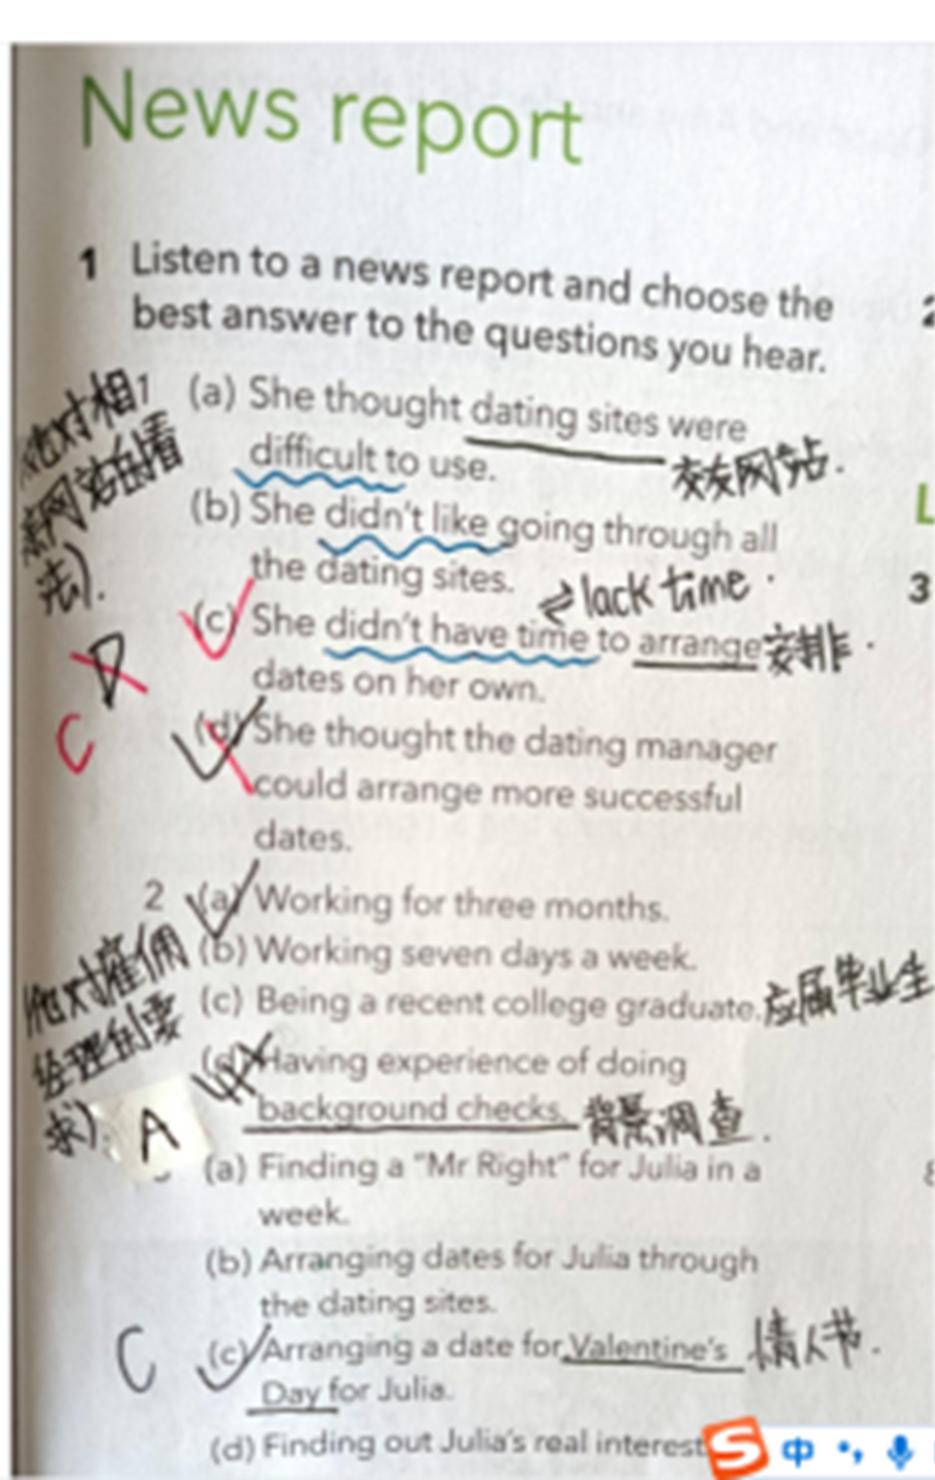 News report
1 Listen to a news report and choose the
best answer to the questions you hear.
1 (a) She thought dating sites were
difficult to use.
交友网站.
(b) She didn't like going through all
the dating sites.
⇌ lack time.
(c) She didn't have time to arrange 安排.
dates on her own.
D
C
(d) She thought the dating manager
could arrange more successful
dates.
2 (a) Working for three months.
(b) Working seven days a week.
(c) Being a recent college graduate. 应届毕业生
(d) Having experience of doing
background checks. 背景调查.
他对雇佣
经理的要
求).
A
(a) Finding a "Mr Right" for Julia in a
week.
(b) Arranging dates for Julia through
the dating sites.
C
(c) Arranging a date for Valentine's 情人节.
Day for Julia.
(d) Finding out Julia's real interest
2
L
3
S 中